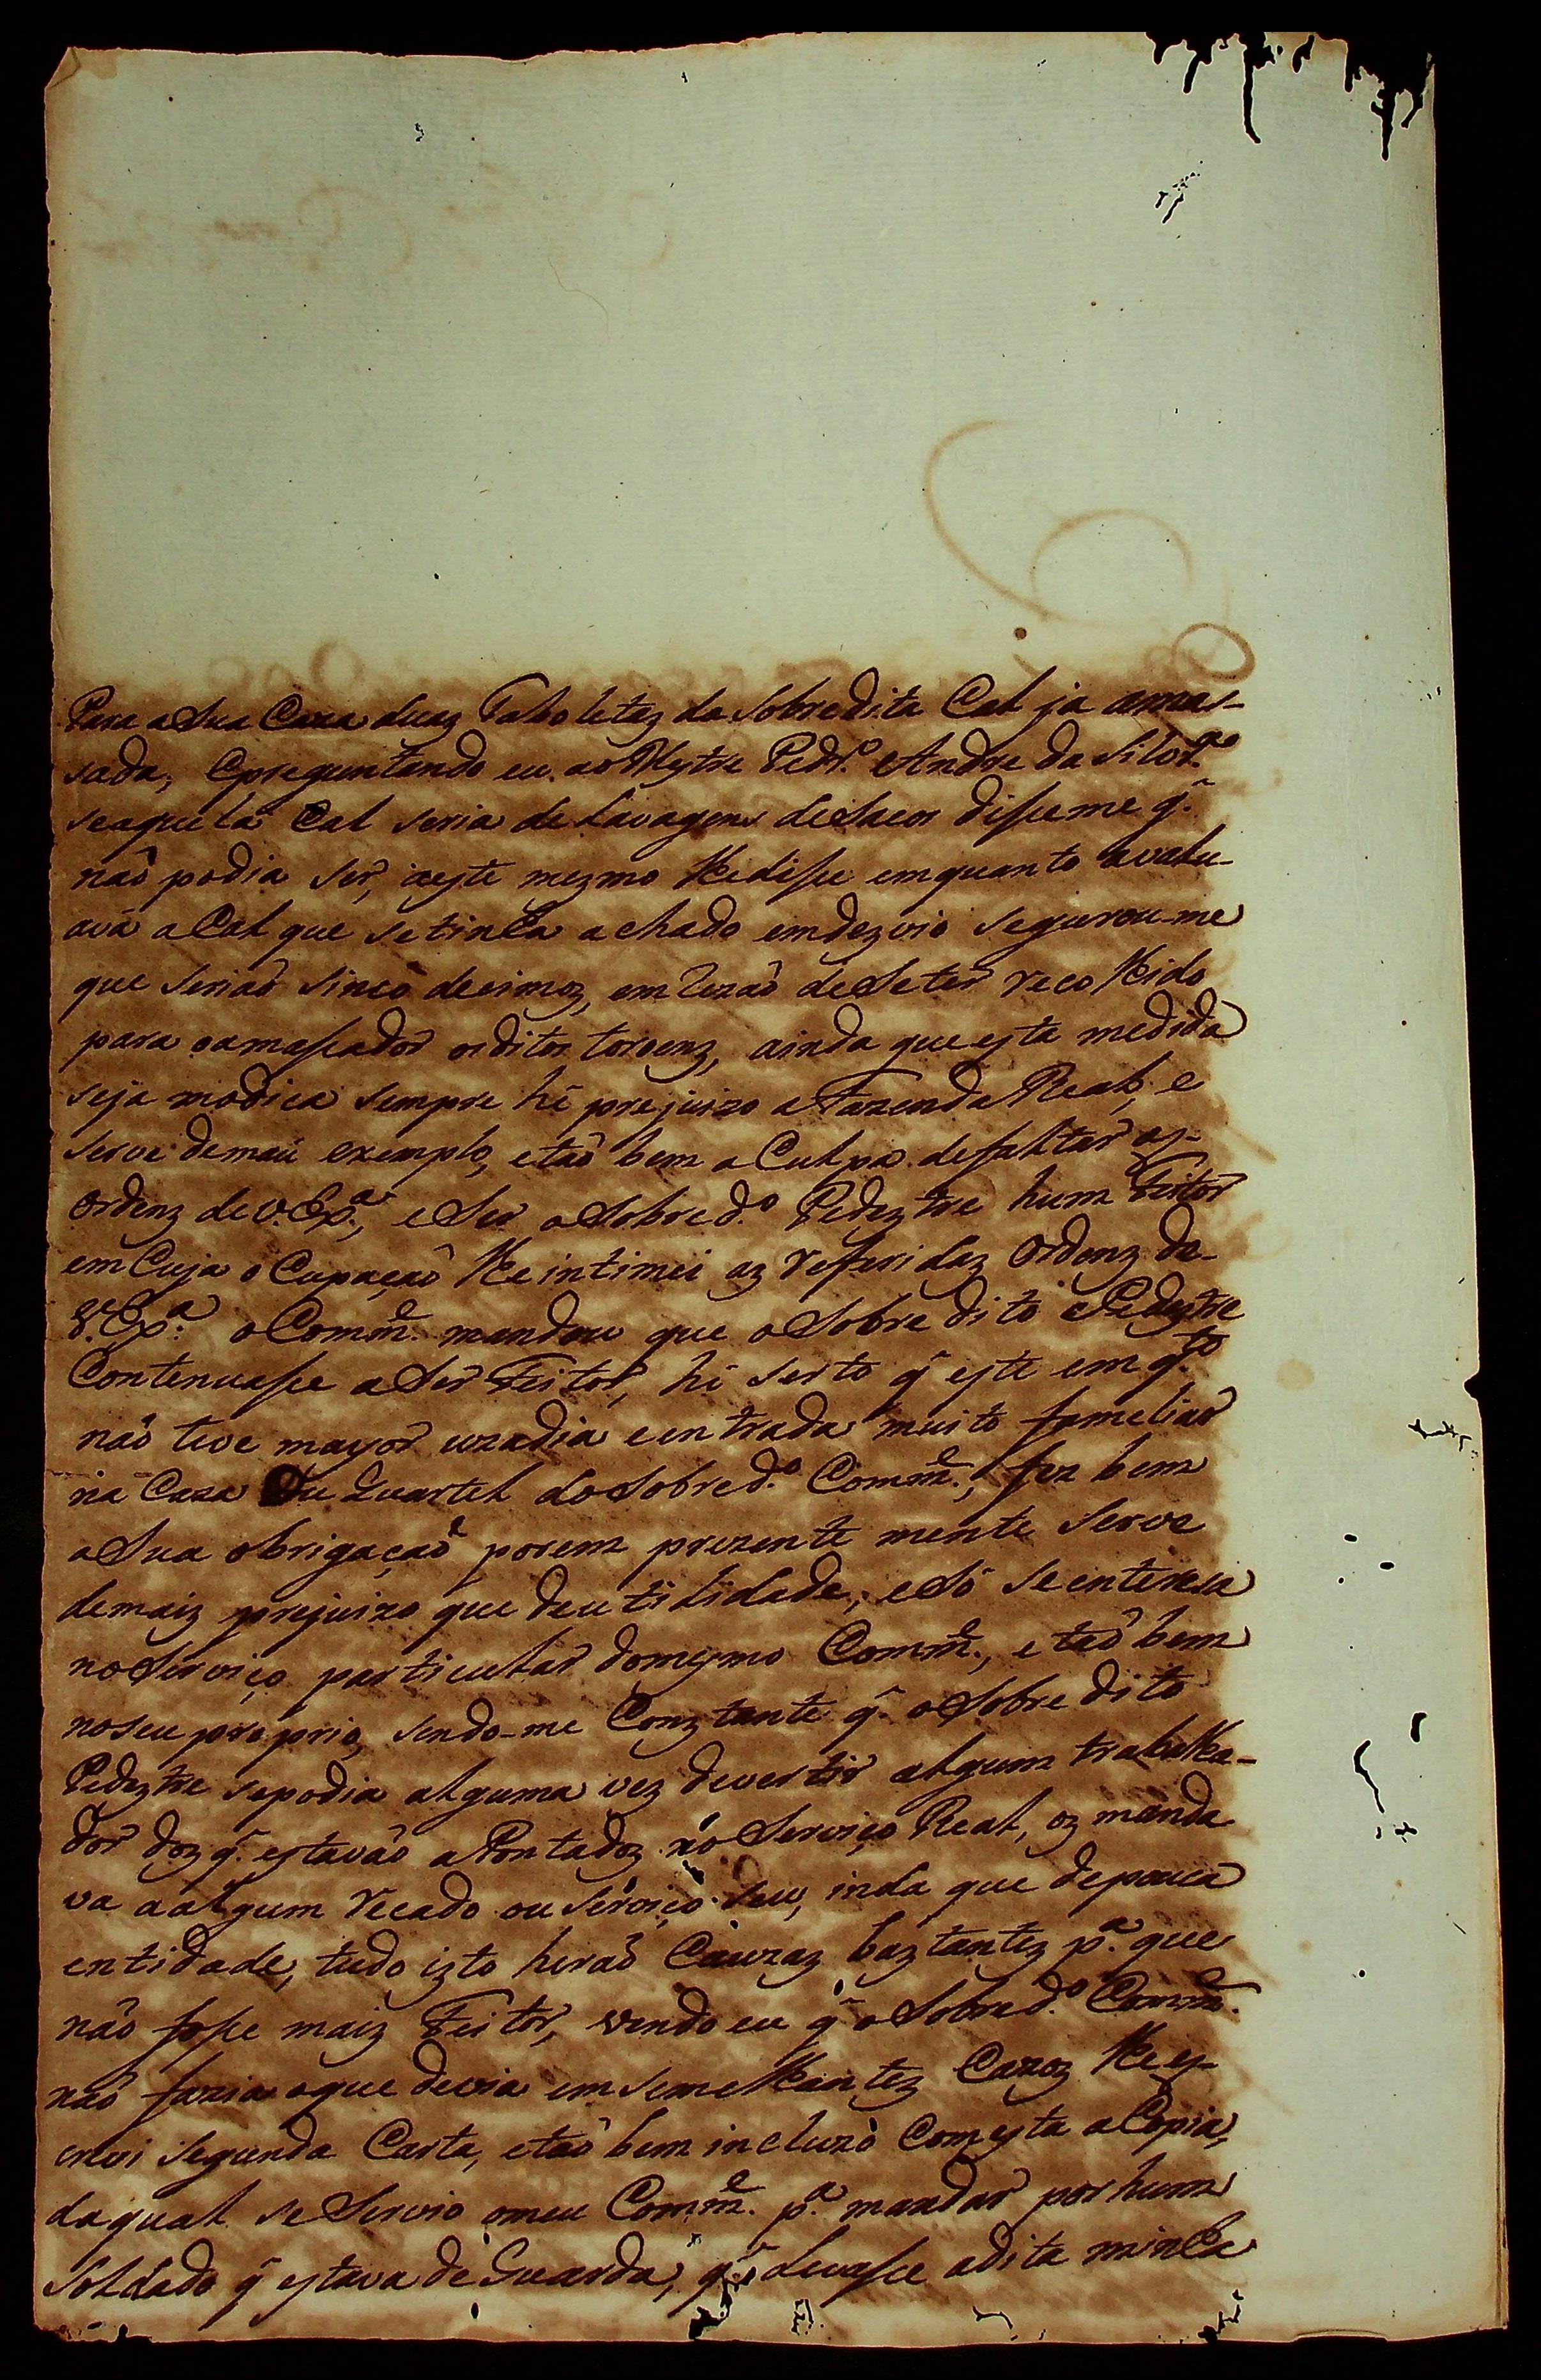 Para a Sua Caza duas Taboletaz da Sobredita Cal ja amas-
sada, e preguntando eu ao Mestre Pedr.º Andre da Silvr.ª
se aquela Cal seria de Lavagens de Sacos disse me q̃
naõ podia ser, a este mezmo lhe disse em quanto avalu-
ava a Cal que se tinha achado em dezvio segurou-me
que seriaõ sinco decimoz, em rezaõ de Se ter recolhido
para o amassador os ditos toroenz, ainda que esta medida
seja modica sempre hé prejuizo a Fazenda Real, e
serve de mau exemplo, e taõ bem a Culpa de faltar as-
Ordenz de V. Exª., e Ser o Sobred.º Pedeztre hum Feitor
em Cuja o Cupaçaõ lhe intimei az referidaz Ordenz de-
V. Exª. o Comm.e mandou que o Sobre dito Pedestre
Contenuasse a Ser Feitor, hé serto q̃ este em q.to
naõ teve mayor uzadia e entrada muito fameliar
na Caza Ou Quartel do Sobred.º Comm.e, fez bem
a Sua obrigaçaõ porem prezente mente serve
de maiz prejuizo que de utilidade, e Só se enteresa
no Serviço particular do mesmo Comm.e, e taõ bem
no seu proprio, sendo-me Conztante q̃ o Sobre dito
Pedeztre se podia alguma vez devertir algum trabalha-
dor doz q̃ estavaõ a Pontadoz no Serviço Real, oz manda
va a algum recado ou serviço seu, inda que de pouca
entidade, tudo izto heraõ Cauzaz baztantez p.ª que
naõ fosse maiz Feitor, vendo eu q̃ o Sobred.º Comm.e
naõ fazia o que devia em semelhantez Cazoz lhe es-
crevi segunda Carta, e taõ bem incluzo Com esta a Copia,
da qual se Servio o meu Comm.e p.ª mandar por hum
Soldado q̃ estava de Guarda, q̃ Levasse a dita minha